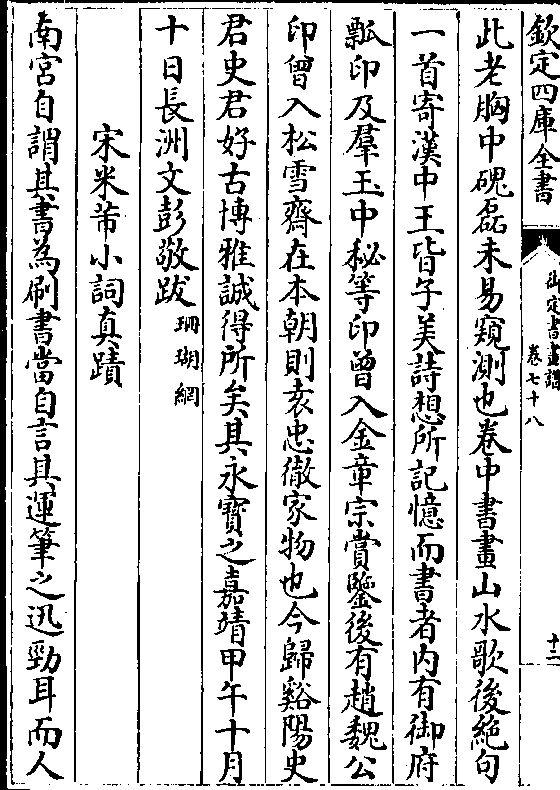 欽定四庫全書
御定書畫譜
卷七十八
十二
此老胸中磈磊未易窺測也卷中書畫山水歌後絶句
一首寄漢中王皆子美詩想所記憶而書者内有御府
瓢印及羣玉中秘等印曾入金章宗賞鑒後有趙魏公
印曾入松雪齋在本朝則袁忠徹家物也今歸谿陽史
君史君好古博雅誠得所矣其永寶之嘉靖甲午十月
十日長洲文彭敬跋珊瑚網
宋米芾小詞真蹟
南宮自謂其書為刷書當自言其運筆之迅勁耳而人